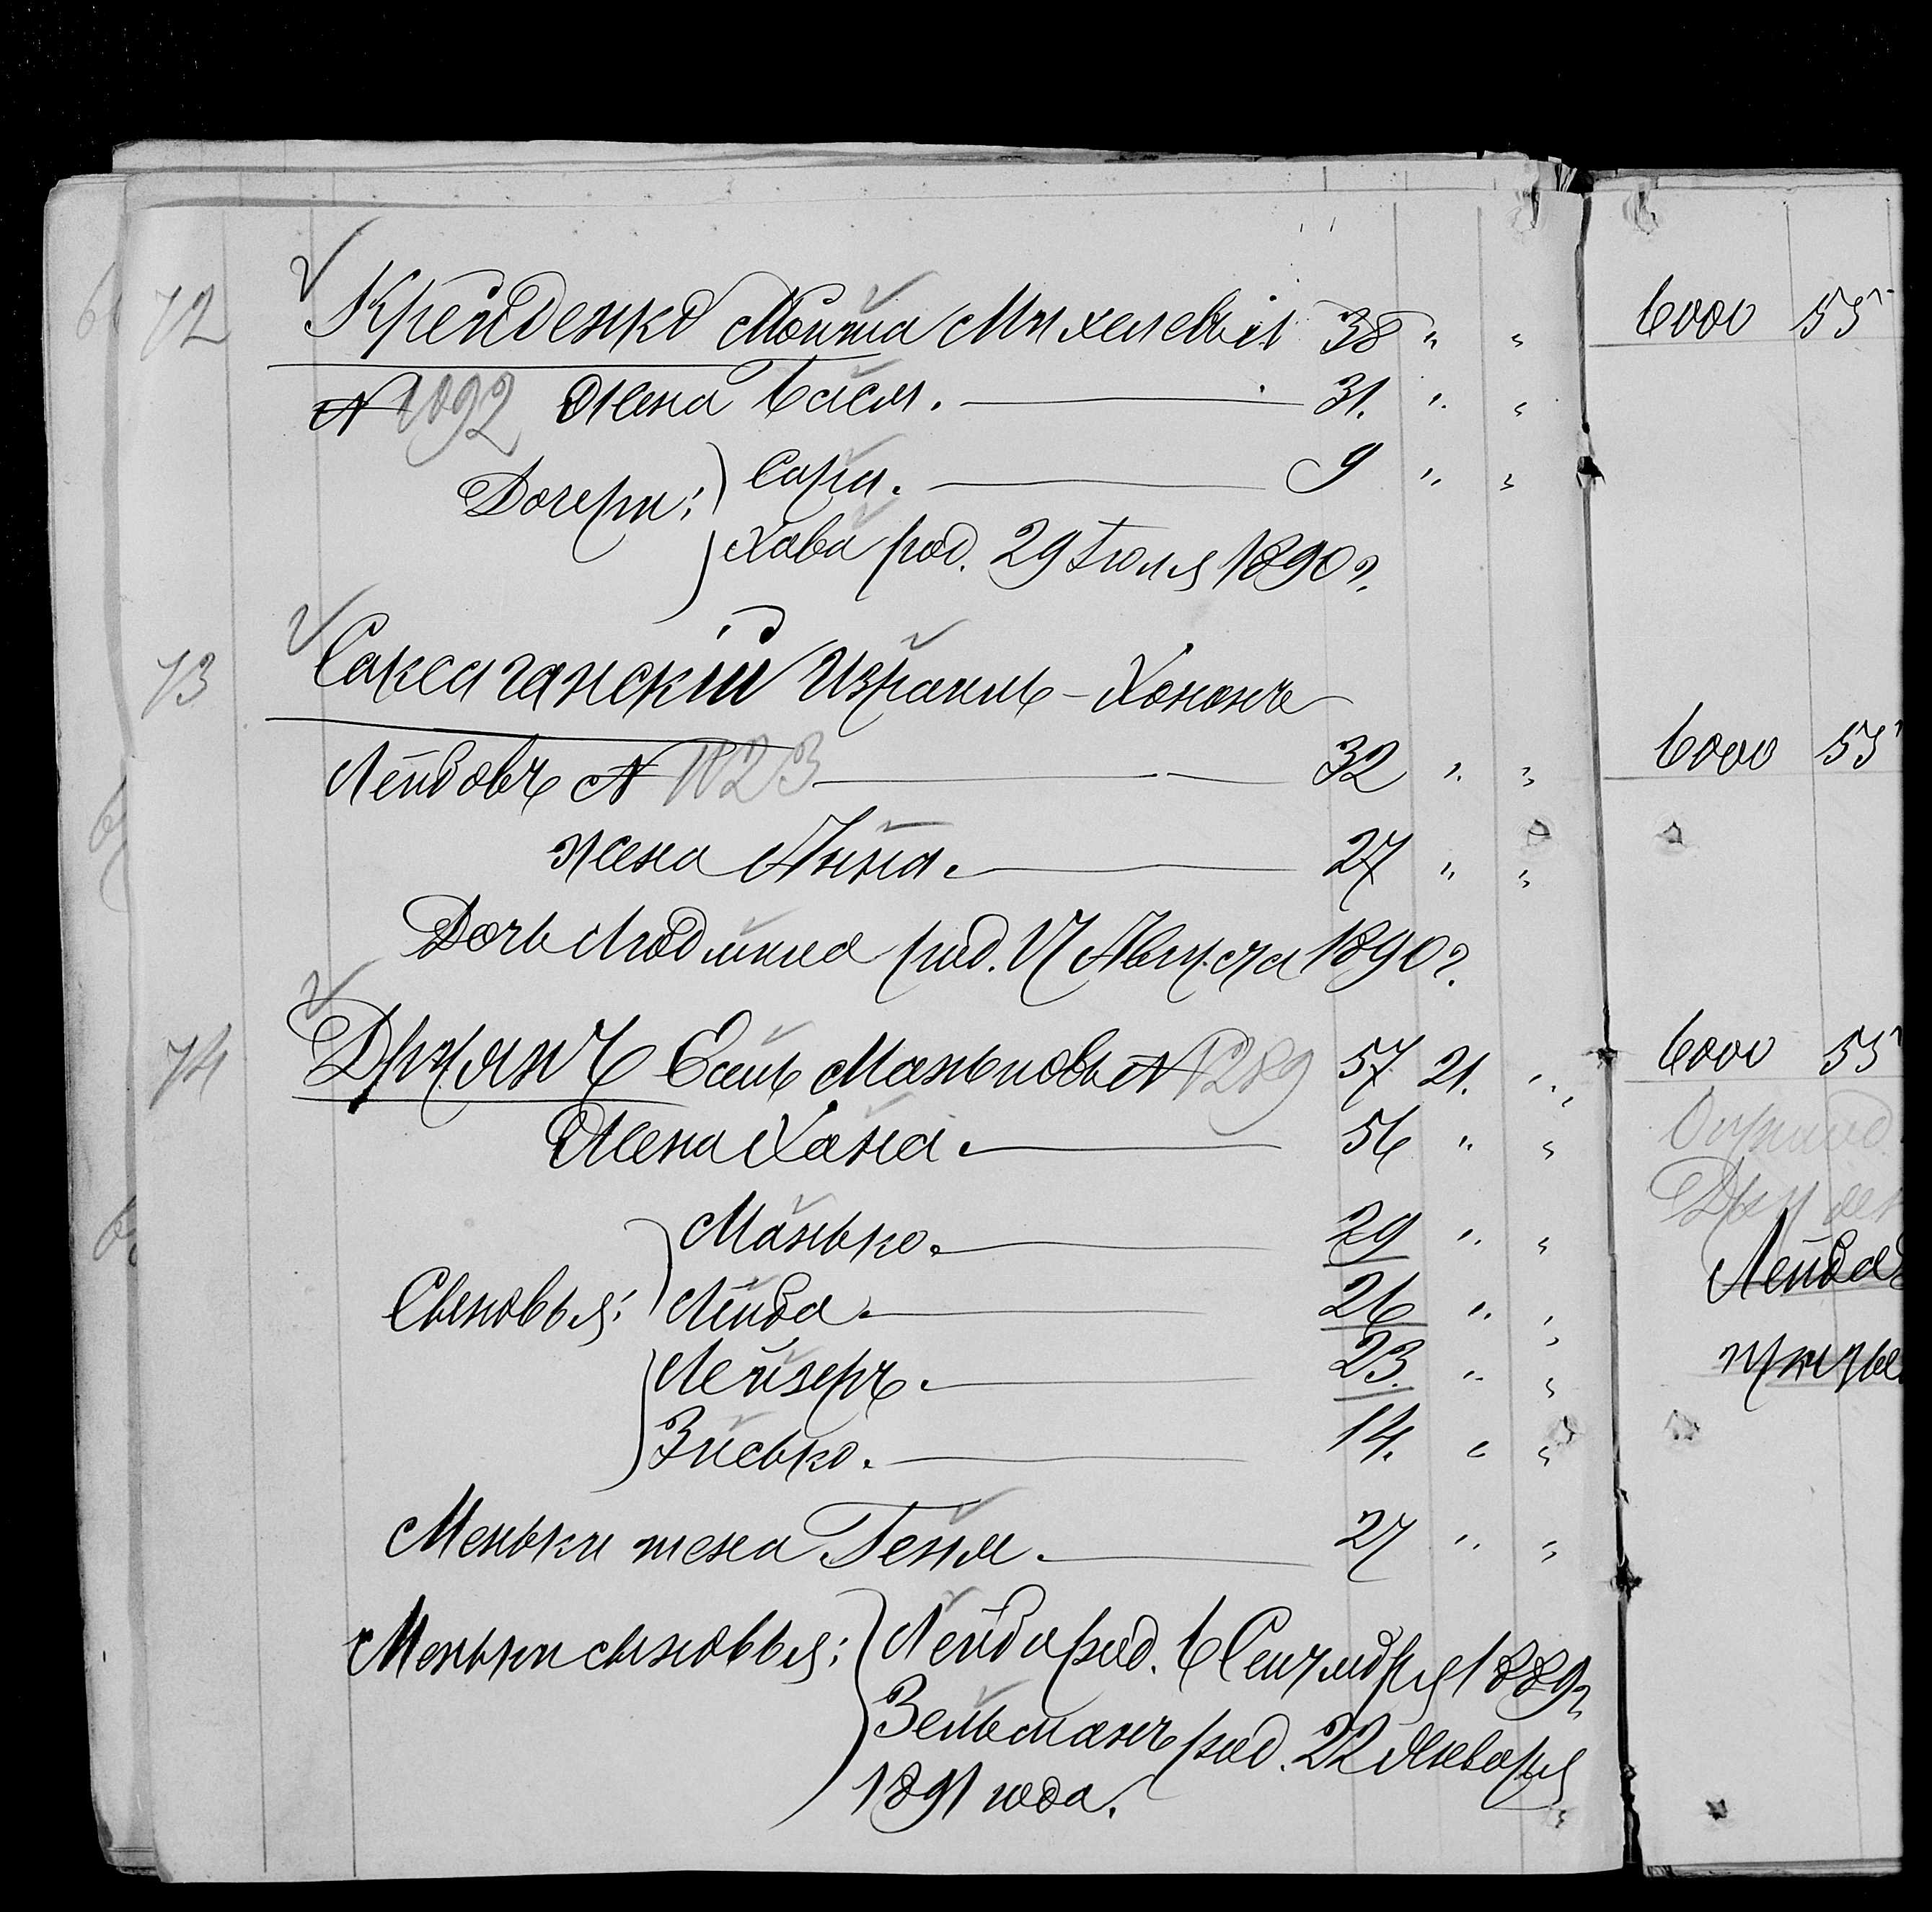 72 Крейденко Мойша Михелевъ 38 " "
№ 1092 Жена Бася. 31. " "
Дочери: Сара. 9 " "
Хава род. 29 Іюля 1890 г.
73 Саксаганскій Израиль-Хононъ
Лейбовъ № 1123 32 " "
жена Анна. 27 " "
Дочь Людмила род. 17 Августа 1890 г.
74 Евсѣ Маньковъ № 1289 57 21. "
Жена Хана. 56 " "
Манько. 29 " "
Сыновья: Лейба. 26 " "
Лейзеръ. 23. " "
Зисько. 14. " "
Меньки жена Геня. 27 " "
Меньки сыновья: Лейба род. 6 Сентября 1889 г.
Зельманъ род. 22 Января
1891 года.
6000 55
6000 55
6000 55
Лейба